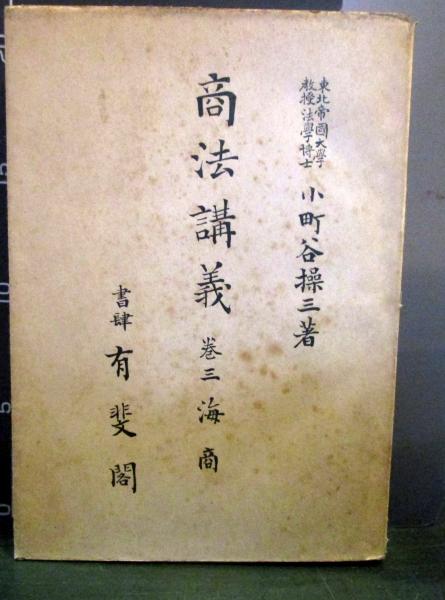 東北帝國大學
教授法學博士
小町谷操三著
商法講義 巻三 海商
書肆 有斐閣